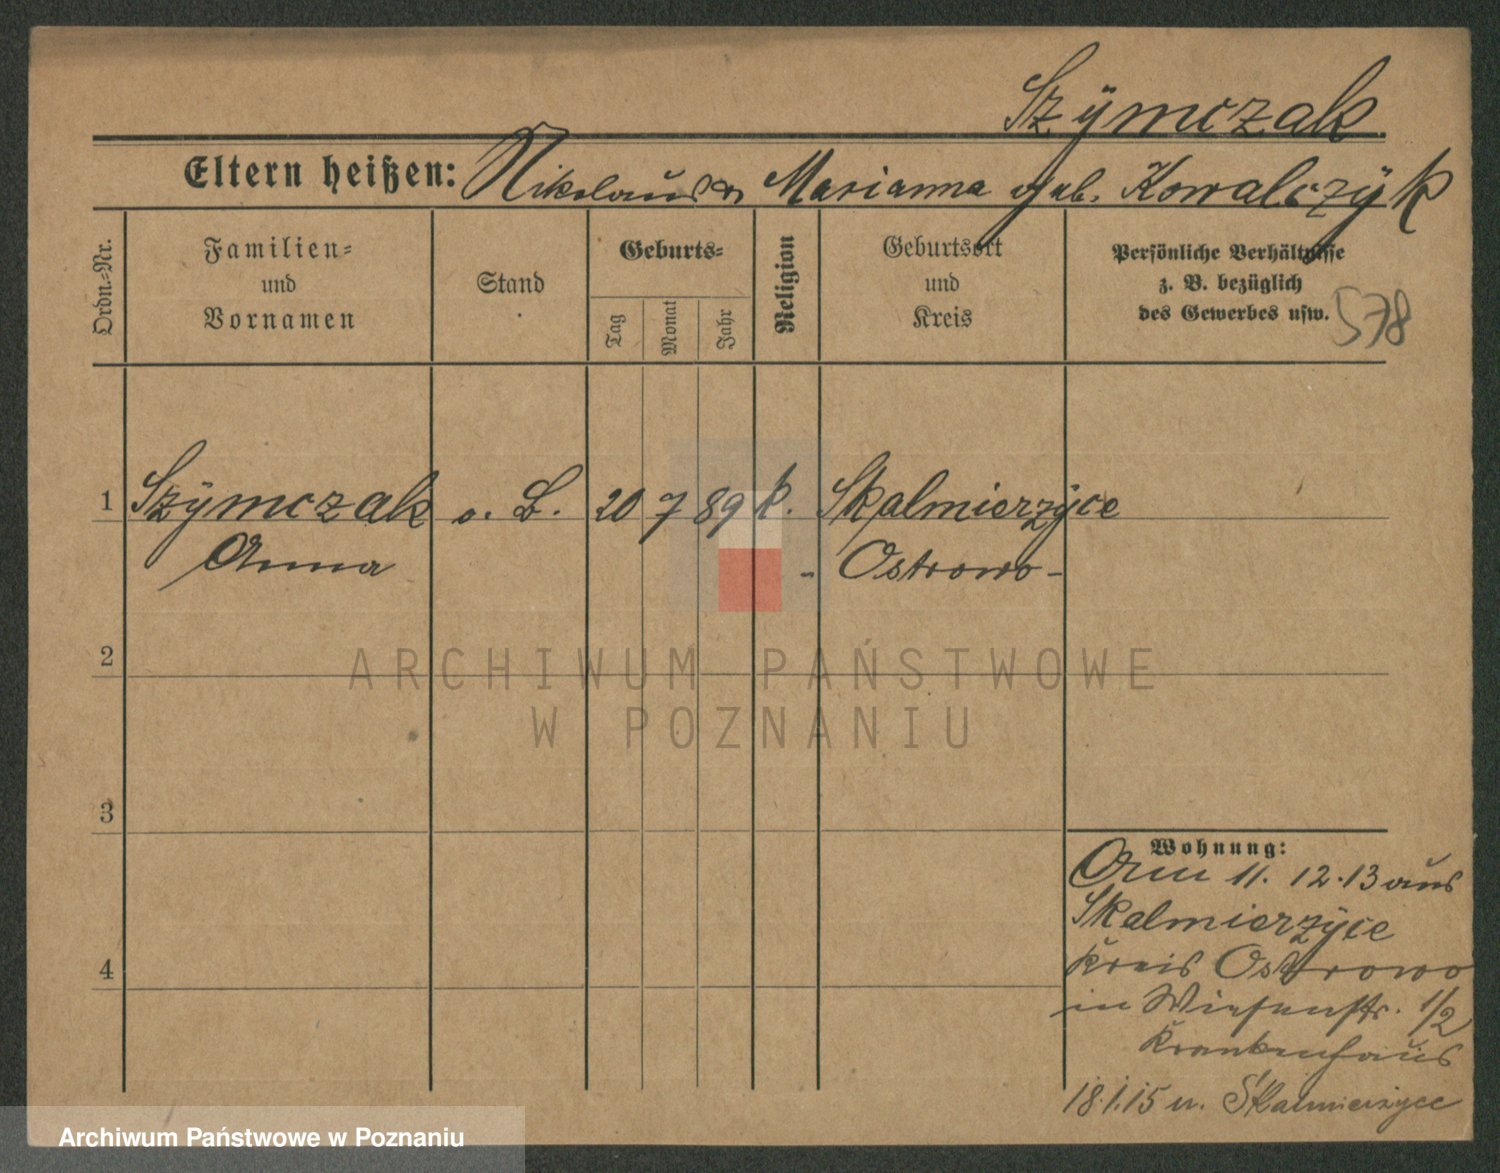 Szÿmczak.
Eltern heißen: Nikolaus u Marianna geb. Kowalczÿk
Ordn.-Nr.
Familien- und Vornamen
Stand
Geburts-
Tag
Monat
Jahr
Religion
Geburtsort und Kreis
Persönliche Verhältnisse z. B. bezüglich des Gewerbes usw.
578
1 Szÿmczak o. B. 20 7 89 k. Skalmierzÿce
Anna " Ostrowo-
2
ARCHIWUM PAŃSTWOWE
W POZNANIU
3
4
Wohnung:
Am 11. 12. 13 aus
Skalmierzÿce
Kreis Ostrowo
in Wiesenstr. 1/2
Krankenhaus
18.1.15 n. Skalmierzyce
Archiwum Państwowe w Poznaniu